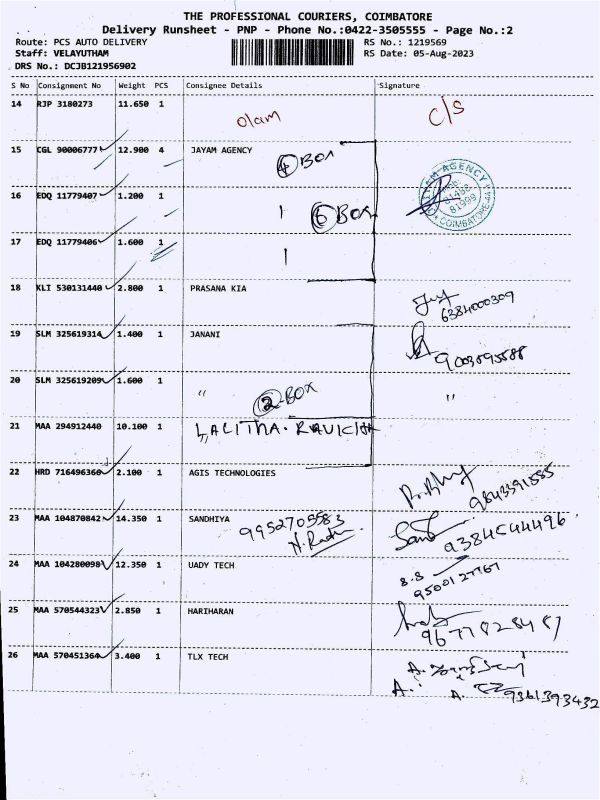 THE PROFESSIONAL COURIERS, COIMBATORE
Delivery Runsheet - PNP - Phone No.:0422-3505555 - Page No.:2
Route: PCS AUTO DELIVERY
RS No.: 1219569
Staff: VELAYUTHAM
RS Date: 05-Aug-2023
DRS No.: DCJB121956902
S No Consignment No Weight PCS Consignee Details Signature
14 RJP 3180273 11.650 1 olam c/s
15 CGL 90006777 12.900 4 JAYAM AGENCY
4 BOX
16 EDQ 11779407 1.200 1
6 BOX
COIMBATORE
17 EDQ 11779406 1.600 1
18 KLI 530131440 2.800 1 PRASANA KIA
6384000309
19 SLM 325619314 1.400 1 JANANI
9003895588
20 SLM 325619209 1.600 1 " "
2 BOX
21 MAA 294912440 10.100 1 LALITHA. RAVICHA
22 HRD 716496360 2.100 1 AGIS TECHNOLOGIES
9843391585
23 MAA 104870842 14.350 1 SANDHIYA
9952705583
24 MAA 104280098 12.350 1 UADY TECH
8.8
9500127767
25 MAA 570544323 2.850 1 HARIHARAN
26 MAA 570451364 3.400 1 TLX TECH
9361393432